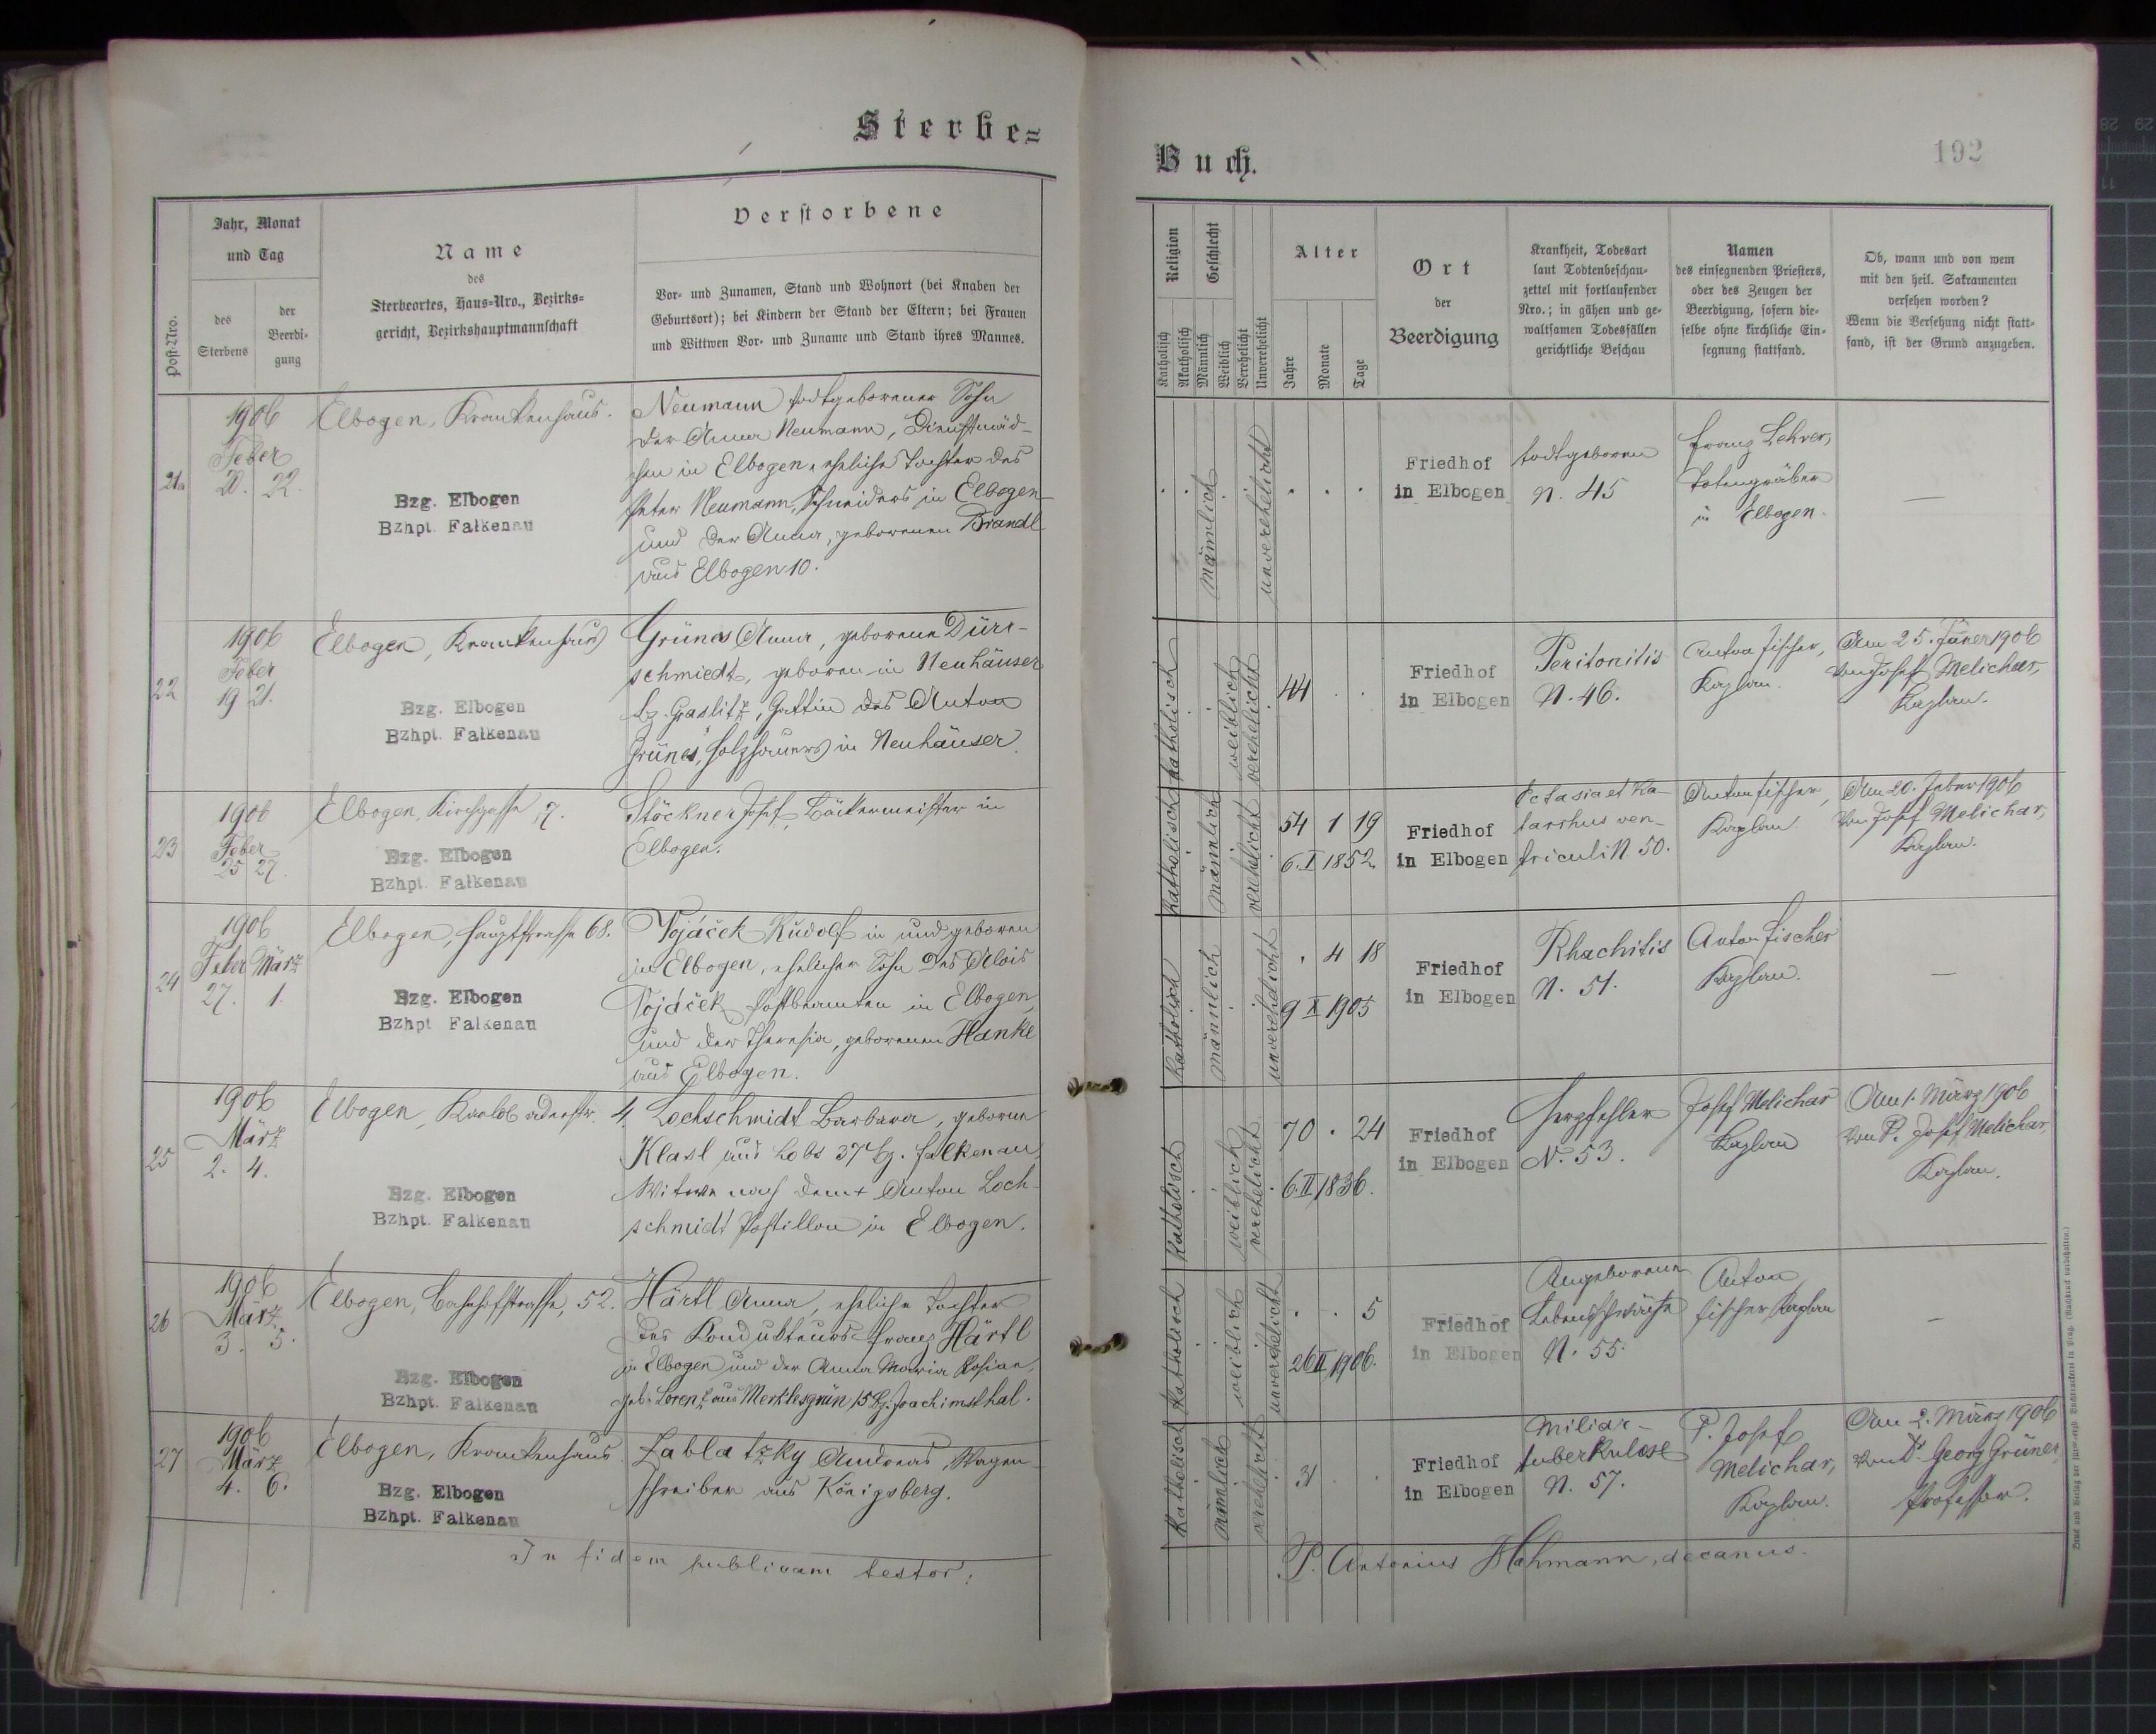 Sterbe=
Buch.
192
Post-Nro.
Jahr, Monat
und Tag
des
Sterbens
der
Beerdi-
gung
Name
des
Sterbeortes, Haus-Nro., Bezirks=
gericht, Bezirkshauptmannschaft
Verstorbene
Vor- und Zunamen, Stand und Wohnort (bei Knaben der
Geburtsort); bei Kindern der Stand der Eltern; bei Frauen
und Wittwen Vor- und Zuname und Stand ihres Mannes.
Religion
Katholisch
Akatholisch
Geschlecht
Männlich
Weiblich
Verehelicht
Unverehelicht
Alter
Jahre
Monate
Tage
Ort
der
Beerdigung
Krankheit, Todesart
laut Todtenbeschau-
zettel mit fortlaufender
Nro.; in gähen und ge-
waltsamen Todesfällen
gerichtliche Beschau
Namen
des einsegnenden Priesters,
oder des Zeugen der
Beerdigung, sofern die-
selbe ohne kirchliche Ein-
segnung stattfand.
Ob, wann und von wem
mit den heil. Sakramenten
versehen worden?
Wenn die Versehung nicht statt-
fand, ist der Grund anzugeben.
21a
1906
Feber
20. 22.
Elbogen, Krankenhaus.
Bzg. Elbogen
Bzhpt. Falkenau
Neumann todtgeborener Sohn
der Anna Neumann, Dienstmäd-
chen in Elbogen, eheliche Tochter des
Peter Neumann, Schneiders in Elbogen
und der Anna, geborenen Brandl
aus Elbogen 10.
männlich
unverehelicht
Friedhof
in Elbogen
todtgeboren
N. 45
Franz Lehrer,
Totengräber
in Elbogen.
—
22
1906
Feber
19 21.
Elbogen, Krankenhaus
Bzg. Elbogen
Bzhpt. Falkenau
Grünes Anna, geborene Dürr-
schmiedt, geboren in Neuhäuser
bz. Graslitz, Gattin des Anton
Grünes, Holzhauers in Neuhäuser.
katholisch
weiblich
verehelicht
44
Friedhof
in Elbogen
Peritonitis
N. 46.
Anton Fischer,
Kaplan.
Am 25. Jäner 1906
von Josef Melichar,
Kaplan.
23
1906
Feber
25 27.
Elbogen, Kirchgasse, 7.
Bzg. Elbogen
Bzhpt. Falkenau
Stöckner Josef, Bäckermeister in
Elbogen.
katholisch
männlich
verehelicht
54 1 19
6. I 1852
Friedhof
in Elbogen
Ectasia et Ka-
tarrhus ven-
triculi N. 50.
Anton Fischer,
Kaplan
Am 20. Feber 1906
von Josef Melichar,
Kaplan.
24
1906
Feber März
27. 1.
Elbogen, Hauptstrasse 68.
Bzg. Elbogen
Bzhpt Falkenau
Vojáček Rudolf in und geboren
in Elbogen, ehelicher Sohn des Alois
Vojáček, Postbeamten in Elbogen,
und der Theresia, geborenen Hanke
aus Elbogen.
katholisch
männlich
unverehelicht
4 18
9 X 1905
Friedhof
in Elbogen
Rhachitis
N. 51.
Anton Fischer
Kaplan.
—
25
1906
März
2. 4.
Elbogen, 4
Bzg. Elbogen
Bzhpt. Falkenau
Lochschmidt Barbara, geborne
Klasl aus Lobs 37 bz. Falkenau
Witwe nach dem + Anton Loch-
schmidt Postillon in Elbogen.
katholisch
weiblich
verehelicht
70 . 24
6. II 1836.
Friedhof
in Elbogen
Herzfehler
N. 53.
Josef Melichar
Kaplan
Am 1. März 1906
von P. Josef Melichar,
Kaplan.
26
1906
März
3. 5.
Elbogen, Bahnhofstrasse, 52.
Bzg. Elbogen
Bzhpt. Falkenau
Härtl Anna, eheliche Tochter
des Kondukteurs Franz Härtl
in Elbogen und der Anna Maria
geb. Lorenz aus Merklesgrün 15 bz. Joachimsthal.
katholisch
weiblich
unverehelicht
5
26 II 1906.
Friedhof
in Elbogen
Angeborene
Lebensschwäche
N. 55.
Anton
Fischer Kaplan
—
27
1906
März
4. 6.
Elbogen, Krankenhaus
Bzg. Elbogen
Bzhpt. Falkenau
Zablatzky Andreas, Wagen-
schreiber aus Königsberg.
katholisch
männlich
verehelicht
31
Friedhof
in Elbogen
Miliar-
tuberkulose
N. 57.
P. Josef
Melichar,
Kaplan.
Am 2. März 1906
von Dr. Georg Grüner
Professor.
In fidem publicam testor:
P. Antonius Hahmann, decanus.